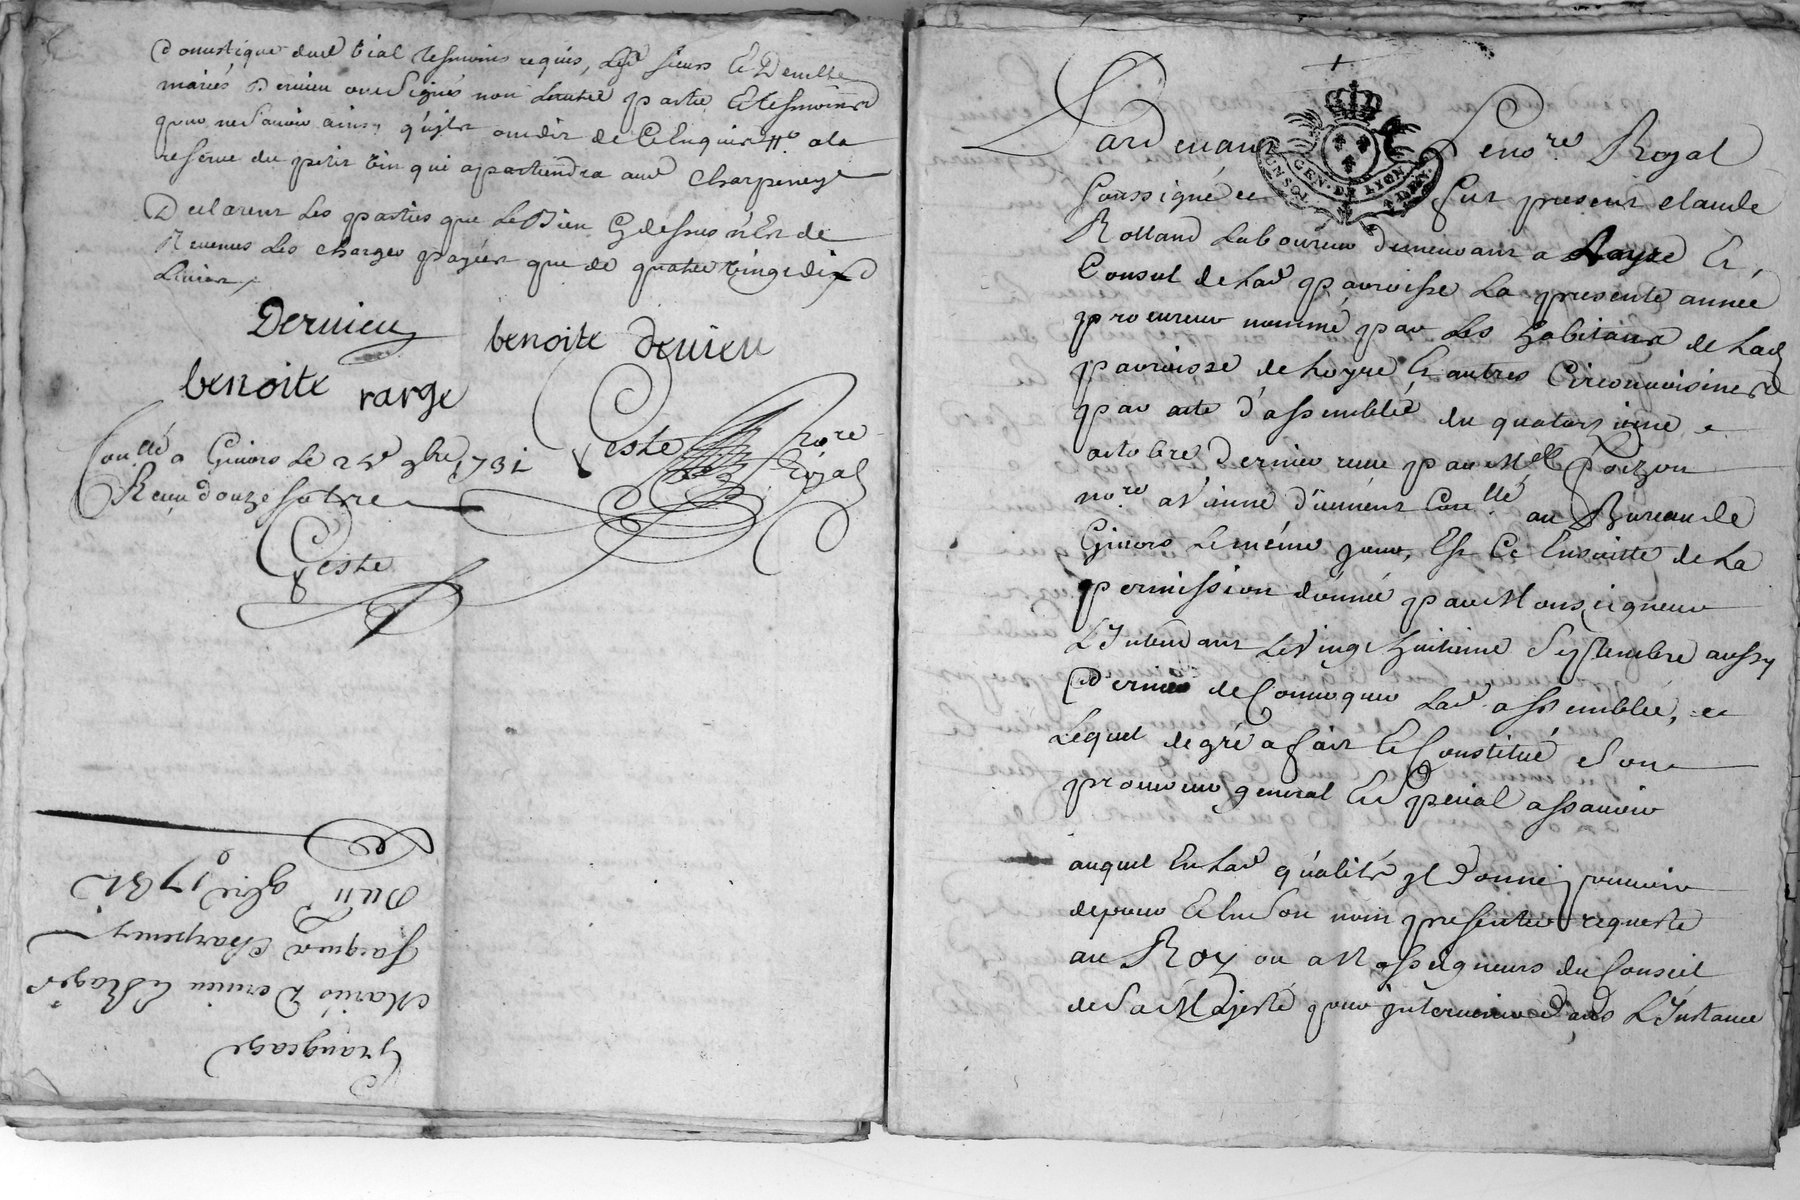 Domestique dud Vial tesmoins requis, Lesd sieurs Et Demlle
mariés Dervieu ont Signés non lautre partie Et tesmoins
pour ne Savoir ainsy qu'ils ont dit de Ce Enquis /. a la
reserve du petit vin qui apartiendra aud Charpeney
Declarent Les parties que Le Bien Cy dessus n'Est de
Revenus Les charges payées que de quatre vingt dix
Livres
Dervieu benoite Dervieu
benoite rarge
Geste Nore Royal
Conllé a Givors Le 25e 9bre 1731
Receu douze sols
Geste
Grangeage
Mariés Dervieu
Jacques Charpeney
Du 11 9bre 1731
GEN. DE LYON
Pardevant Le nore Royal
Soussigné et fut present claude
Rolland Laboureur demeurant a Loyre Et
Consul de Lad parroisse La presente année
procureur nommé par Les habitans de Lad
parroisse de Loyre Et autres Circonvoisines
par acte d'assemblée du quatorzieme
octobre Dernier receu par Me Poizon
nore a Vienne d'uement Conllé au Bureau de
Givors Le même jour, Et Ce Ensuitte de La
permission donnée par Monseigneur
L'Intendant Le Vingt huitieme Septembre aussy
Dernier de Convoquer Lad assemblée, et
Lequel de gré a fait Et Constitué Son
procureur general Et special assavoir
auquel En Lad qualité il Donne pouvoir
de pour Et En Son nom presenter requeste
au Roy ou a Nosseigneurs du Conseil
de Sa Majesté pour intervenir dans L'Instance